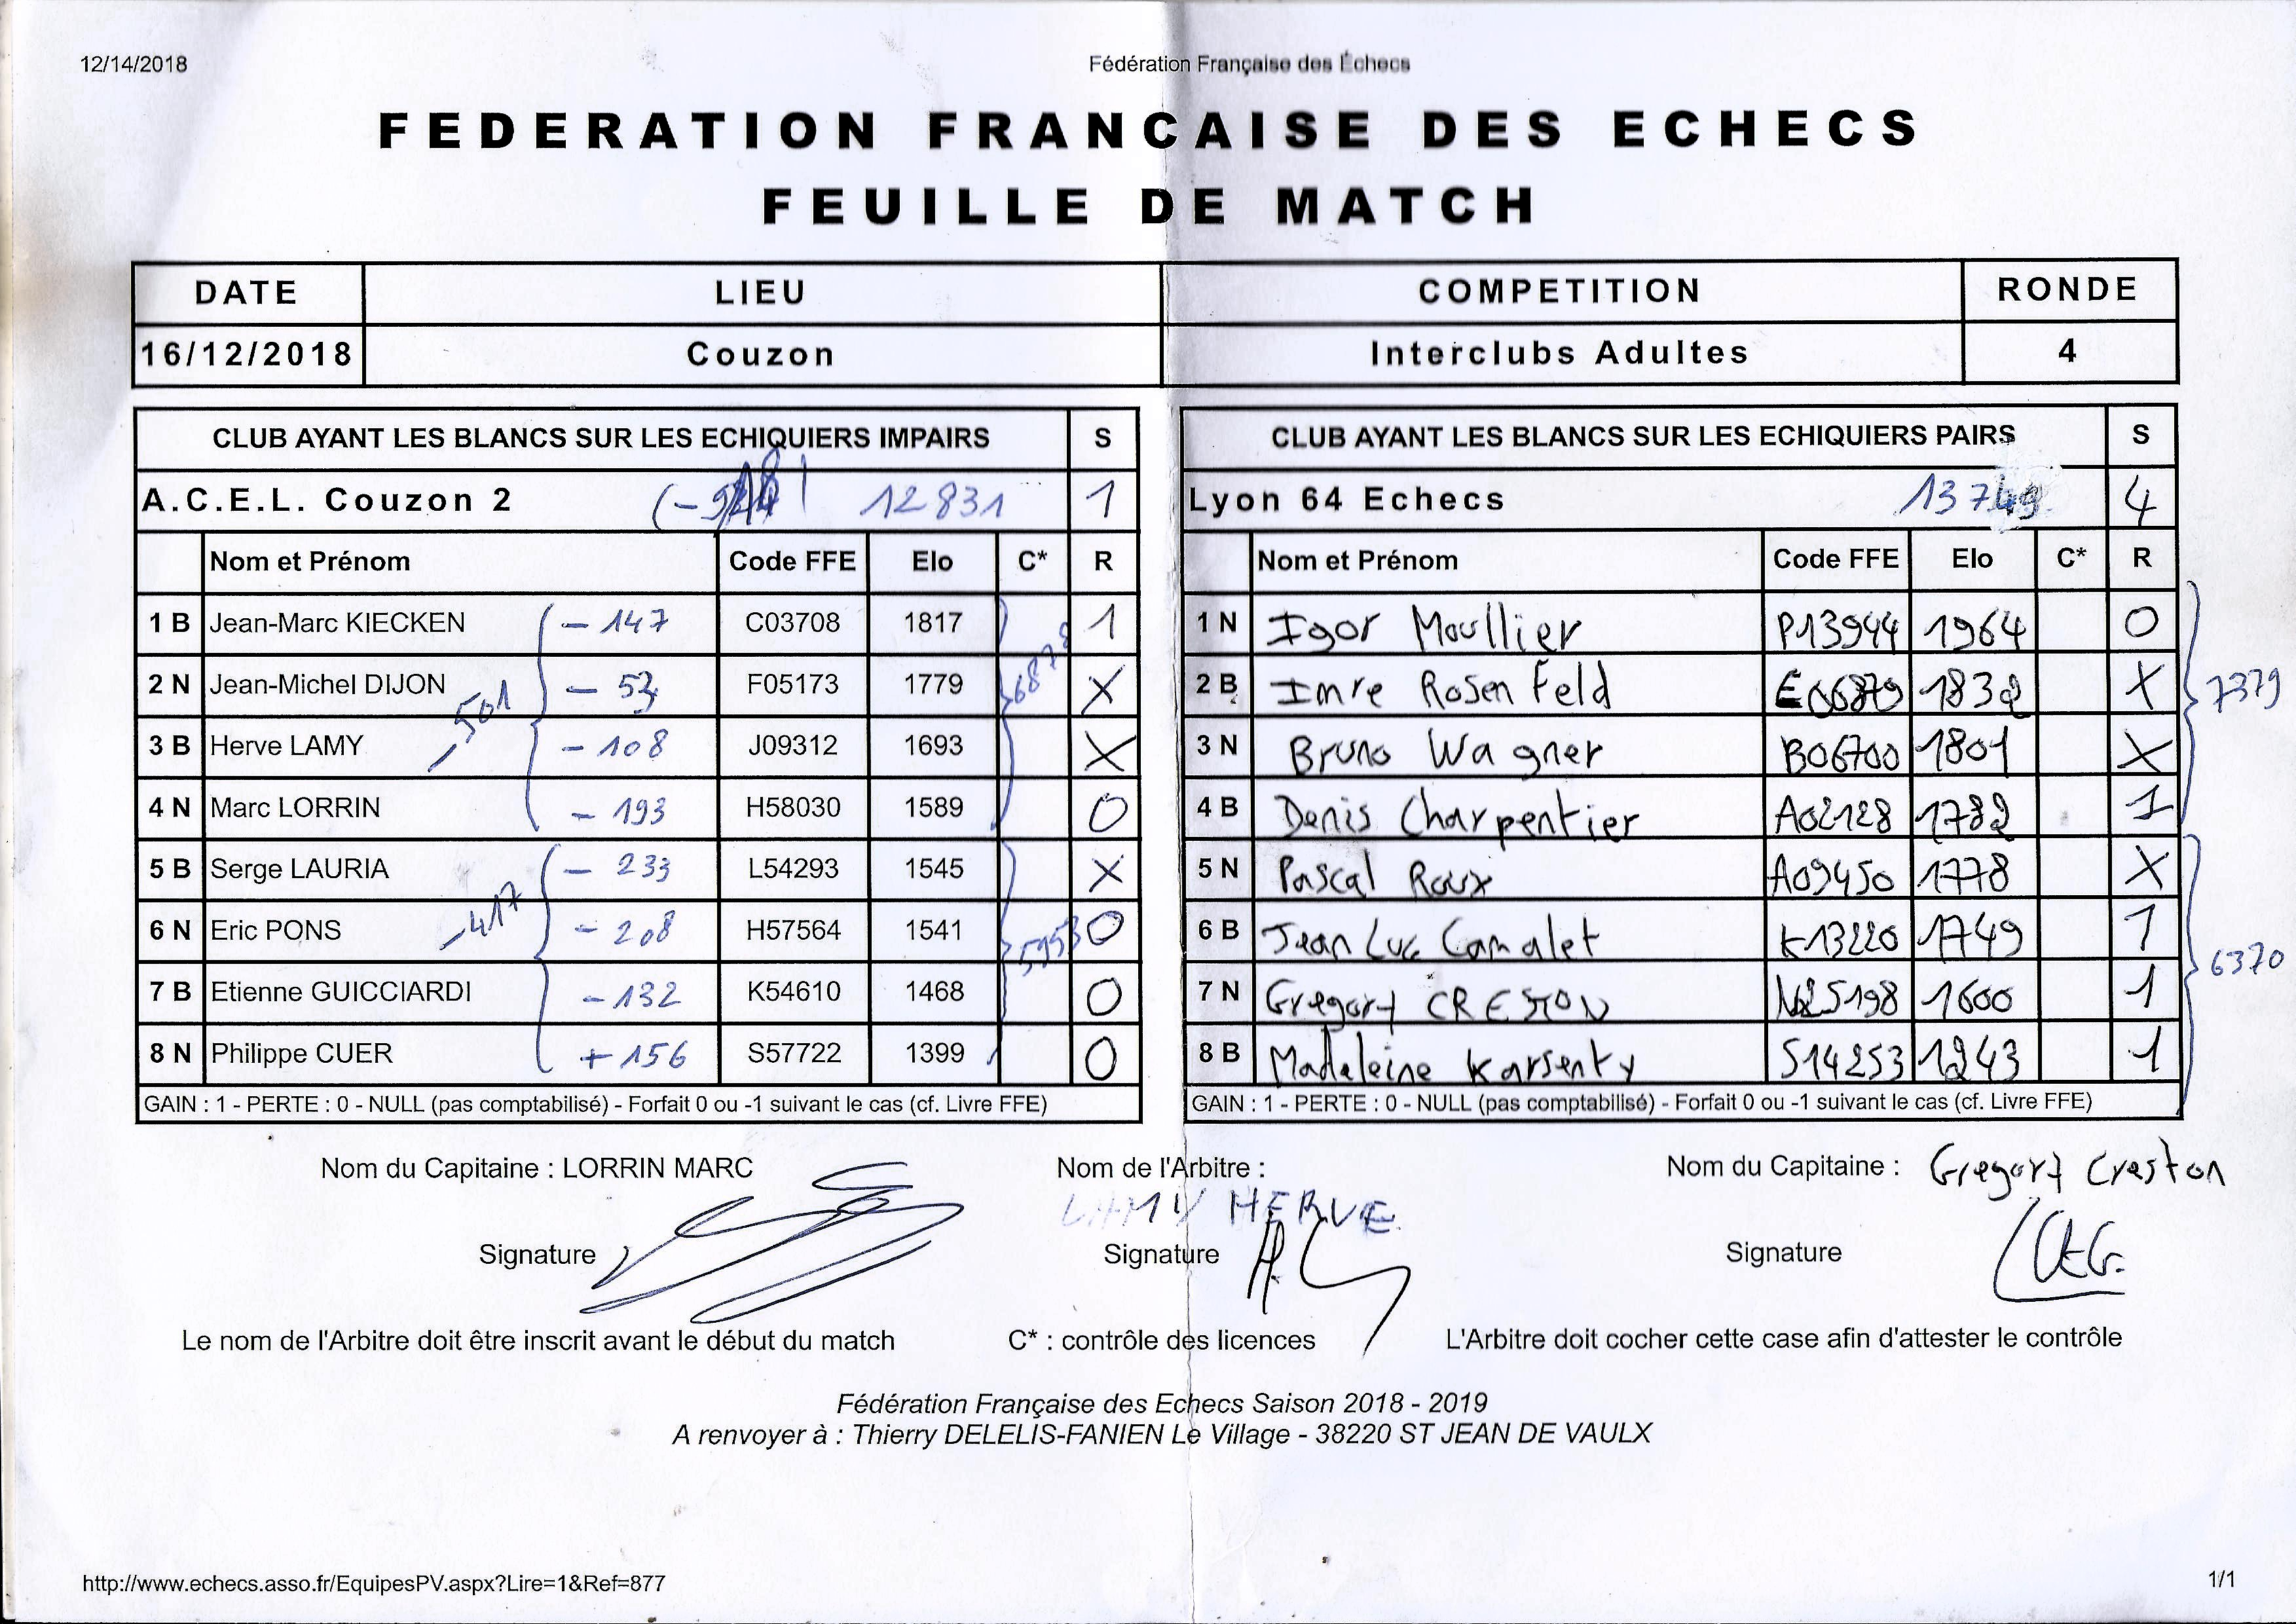 12/14/2018 Fédération Française des Échecs
FEDERATION FRANCAISE DES ECHECS
FEUILLE DE MATCH
DATE LIEU COMPETITION RONDE
16/12/2018 Couzon Interclubs Adultes 4
CLUB AYANT LES BLANCS SUR LES ECHIQUIERS IMPAIRS S
A.C.E.L. Couzon 2 12831 1
Nom et Prénom Code FFE Elo C* R
1 B Jean-Marc KIECKEN - 147 C03708 1817 1
2 N Jean-Michel DIJON - 53 F05173 1779 X
3 B Herve LAMY - 108 J09312 1693 X
4 N Marc LORRIN - 193 H58030 1589 0
5 B Serge LAURIA - 233 L54293 1545 X
6 N Eric PONS - 208 H57564 1541 0
7 B Etienne GUICCIARDI - 132 K54610 1468 0
8 N Philippe CUER + 156 S57722 1399 0
- 501
- 417
6878
5953
GAIN : 1 - PERTE : 0 - NULL (pas comptabilisé) - Forfait 0 ou -1 suivant le cas (cf. Livre FFE)
CLUB AYANT LES BLANCS SUR LES ECHIQUIERS PAIRS S
Lyon 64 Echecs 13749 4
Nom et Prénom Code FFE Elo C* R
1 N Igor Moullier P13944 1964 0
2 B Imre Rosenfeld E06879 1832 X
3 N Bruno Wagner B06700 1801 X
4 B Denis Charpentier A02128 1782 1
5 N Pascal Roux A09450 1778 X
6 B Jean Luc Camalet K13220 1749 1
7 N Gregory CRESTON N25198 1600 1
8 B Madeleine Karsenty S14253 1243 1
7379
6370
GAIN : 1 - PERTE : 0 - NULL (pas comptabilisé) - Forfait 0 ou -1 suivant le cas (cf. Livre FFE)
Nom du Capitaine : LORRIN MARC Nom de l'Arbitre : Nom du Capitaine : Gregory Creston
LAMY HERVE
Signature Signature Signature
Le nom de l'Arbitre doit être inscrit avant le début du match C* : contrôle des licences L'Arbitre doit cocher cette case afin d'attester le contrôle
Fédération Française des Echecs Saison 2018 - 2019
A renvoyer à : Thierry DELELIS-FANIEN Le Village - 38220 ST JEAN DE VAULX
http://www.echecs.asso.fr/EquipesPV.aspx?Lire=1&Ref=877 1/1